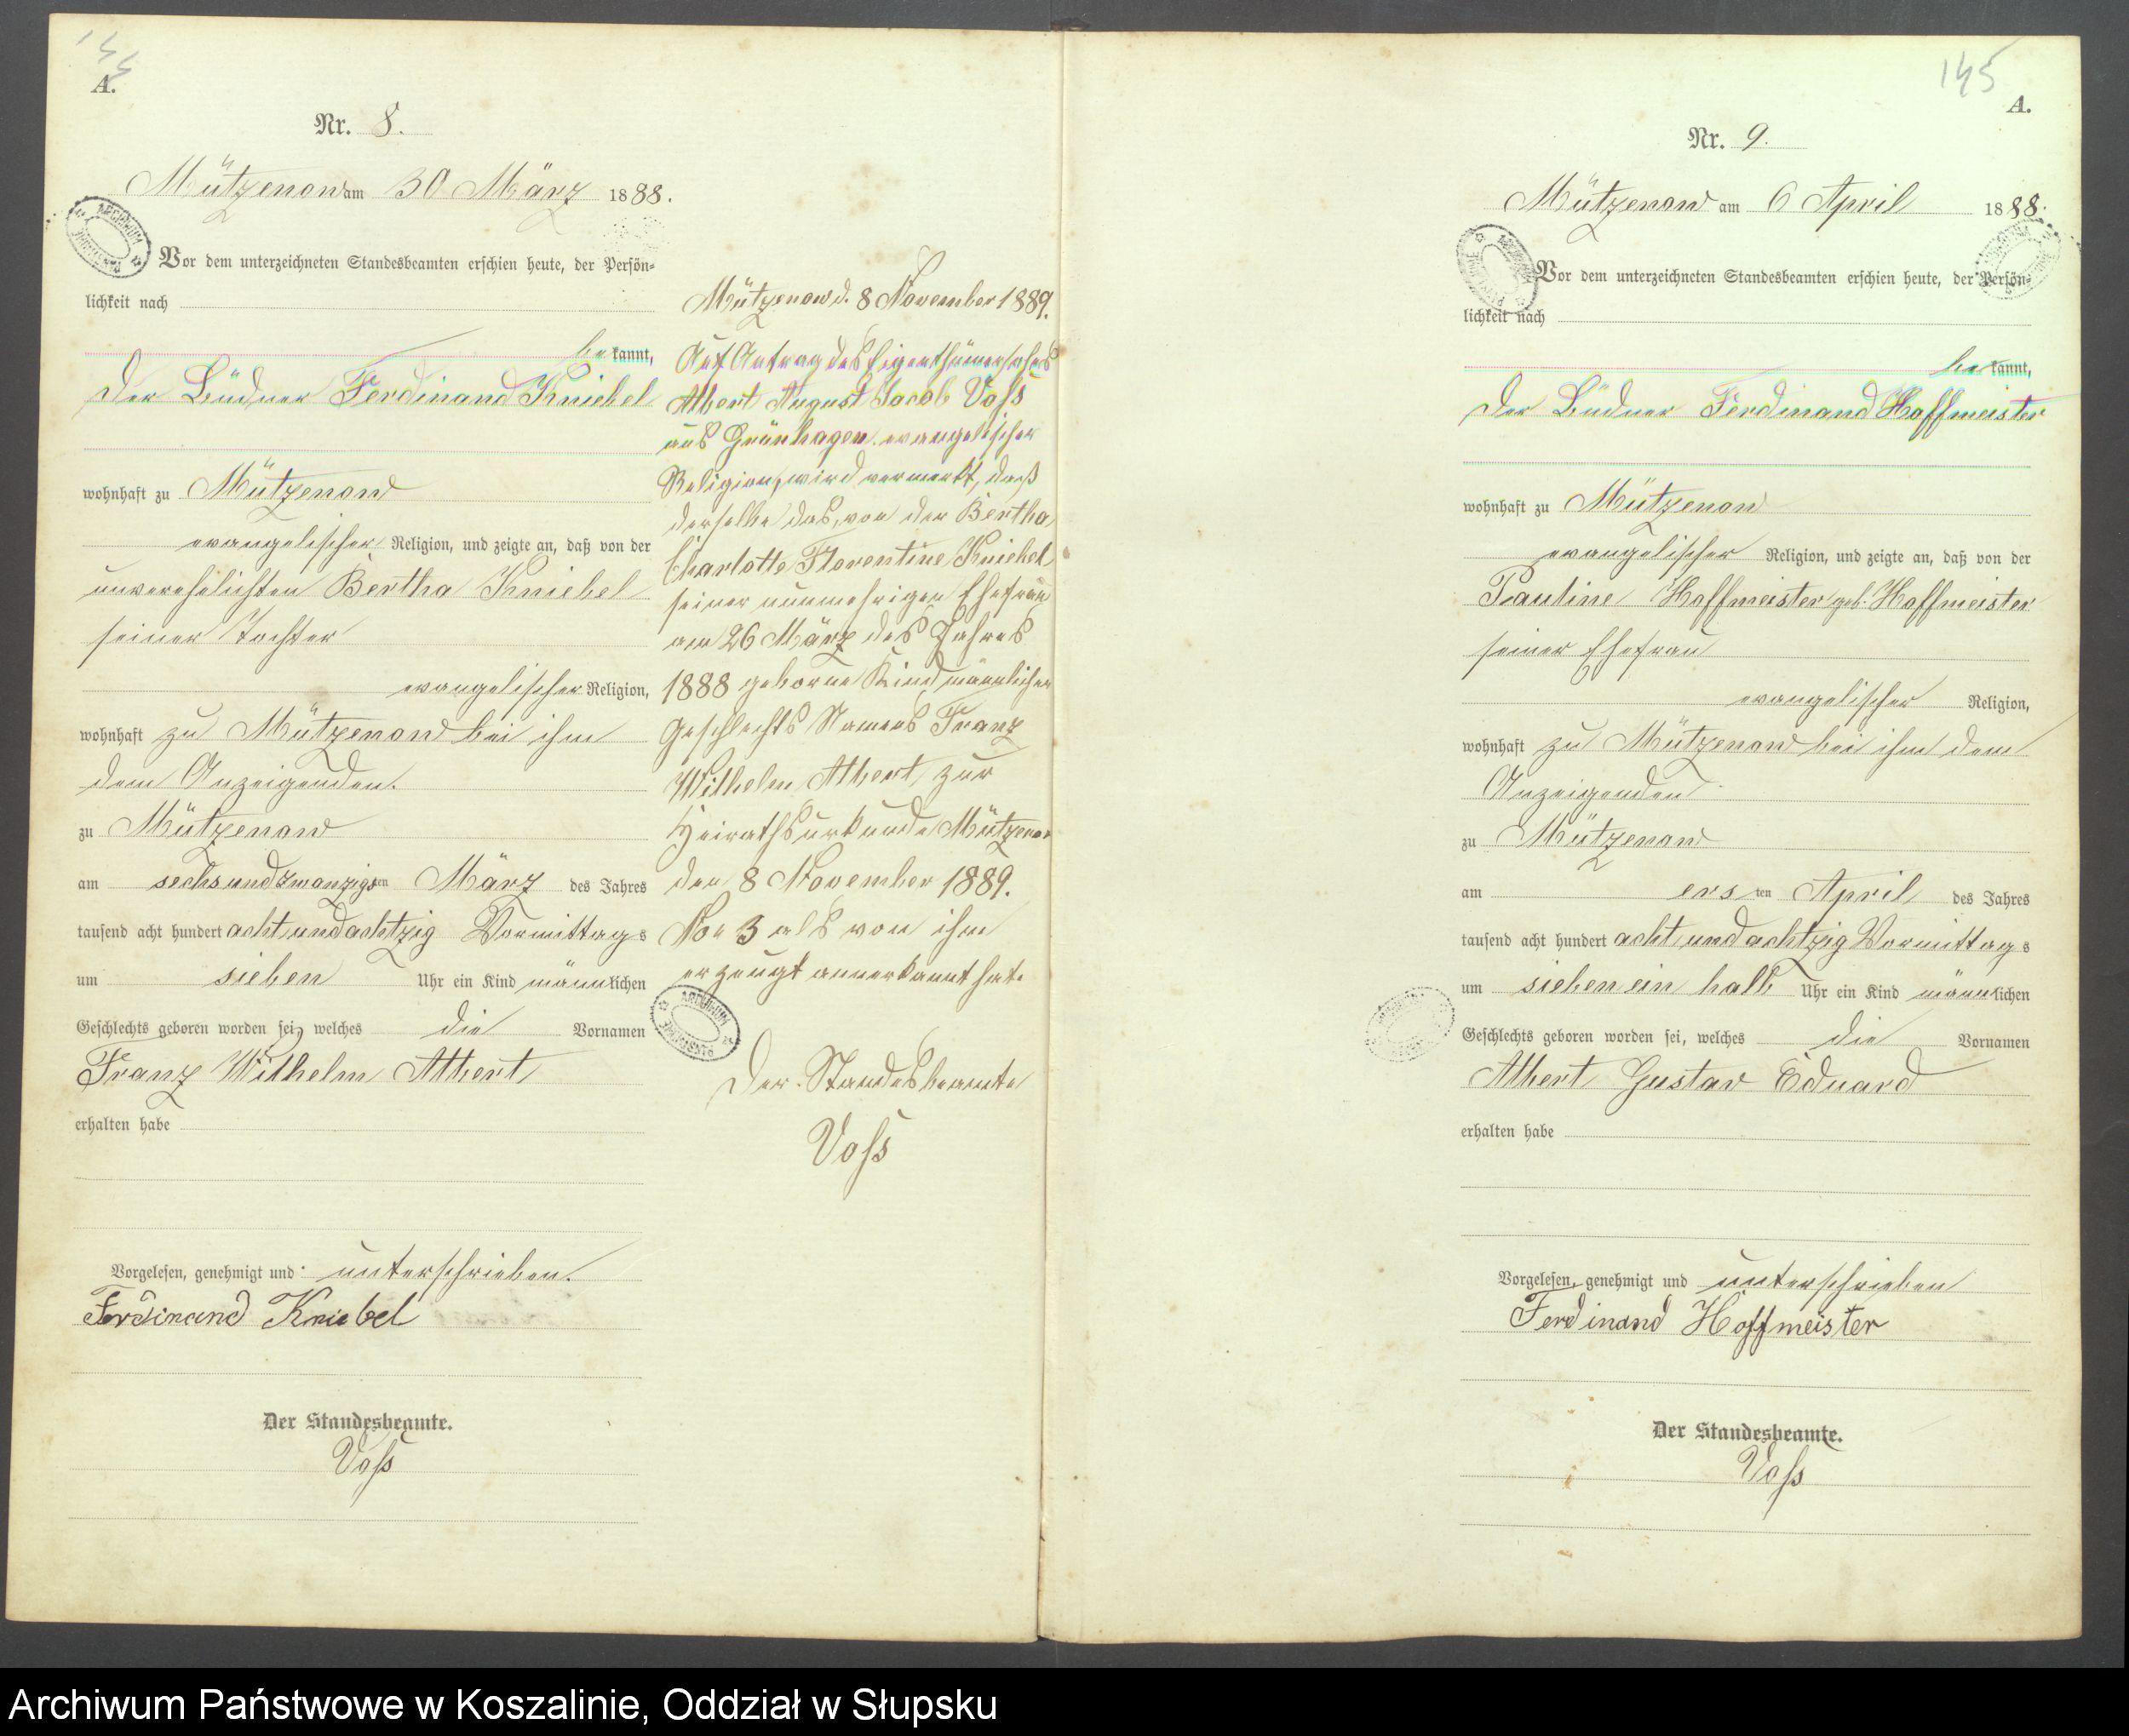 144
A.
Nr. 8.
Mützenow am 30 März 1888.
Vor dem unterzeichneten Standesbeamten erschien heute, der Persön-
lichkeit nach
bekannt,
der Büdner Ferdinand Kniebel
wohnhaft zu Mützenow
evangelischer Religion, und zeigte an, daß von der
unverehelichten Bertha Kniebel
seiner Tochter
evangelischer Religion,
wohnhaft zu Mützenow bei ihm
dem Anzeigenden.
zu Mützenow
am sechsundzwanzigsten März des Jahres
tausend acht hundert achtundachtzig Vormittags
um sieben Uhr ein Kind männlichen
Geschlechts geboren worden sei, welches die Vornamen
Franz Wilhelm Albert
erhalten habe
Vorgelesen, genehmigt und unterschrieben.
Ferdinand Kniebel
Der Standesbeamte.
Voss
Mützenow d. 8 November 1889.
Auf Antrag des Eigenthümersohnes
Albert August Jacob Voss
aus Grünhagen evangelischer
Religion, wird vermerkt, daß
derselbe das, von der Bertha
Charlotte Florentine Kniebel
seiner nunmehrigen Ehefrau
am 26 März des Jahres
1888 geborne Kind männlichen
Geschlechts Namens Franz
Wilhelm Albert, zur
Heirathsurkunde Mützenow
den 8 November 1889.
No 3 als von ihm
erzeugt annerkannt hat.
Der Standesbeamte
Voss
145
A.
Nr. 9.
Mützenow am 6 April 1888.
Vor dem unterzeichneten Standesbeamten erschien heute, der Persön-
lichkeit nach
bekannt,
der Büdner Ferdinand Hoffmeister
wohnhaft zu Mützenow
evangelischer Religion, und zeigte an, daß von der
Pauline Hoffmeister geb. Hoffmeister
seiner Ehefrau
evangelischer Religion,
wohnhaft zu Mützenow bei ihm dem
Anzeigenden
zu Mützenow
am ersten April des Jahres
tausend acht hundert achtundachtzig Vormittags
um sieben ein halb Uhr ein Kind männlichen
Geschlechts geboren worden sei, welches die Vornamen
Albert Gustav Eduard
erhalten habe
Vorgelesen, genehmigt und unterschrieben
Ferdinand Hoffmeister
Der Standesbeamte.
Voss
Archiwum Państwowe w Koszalinie, Oddział w Słupsku